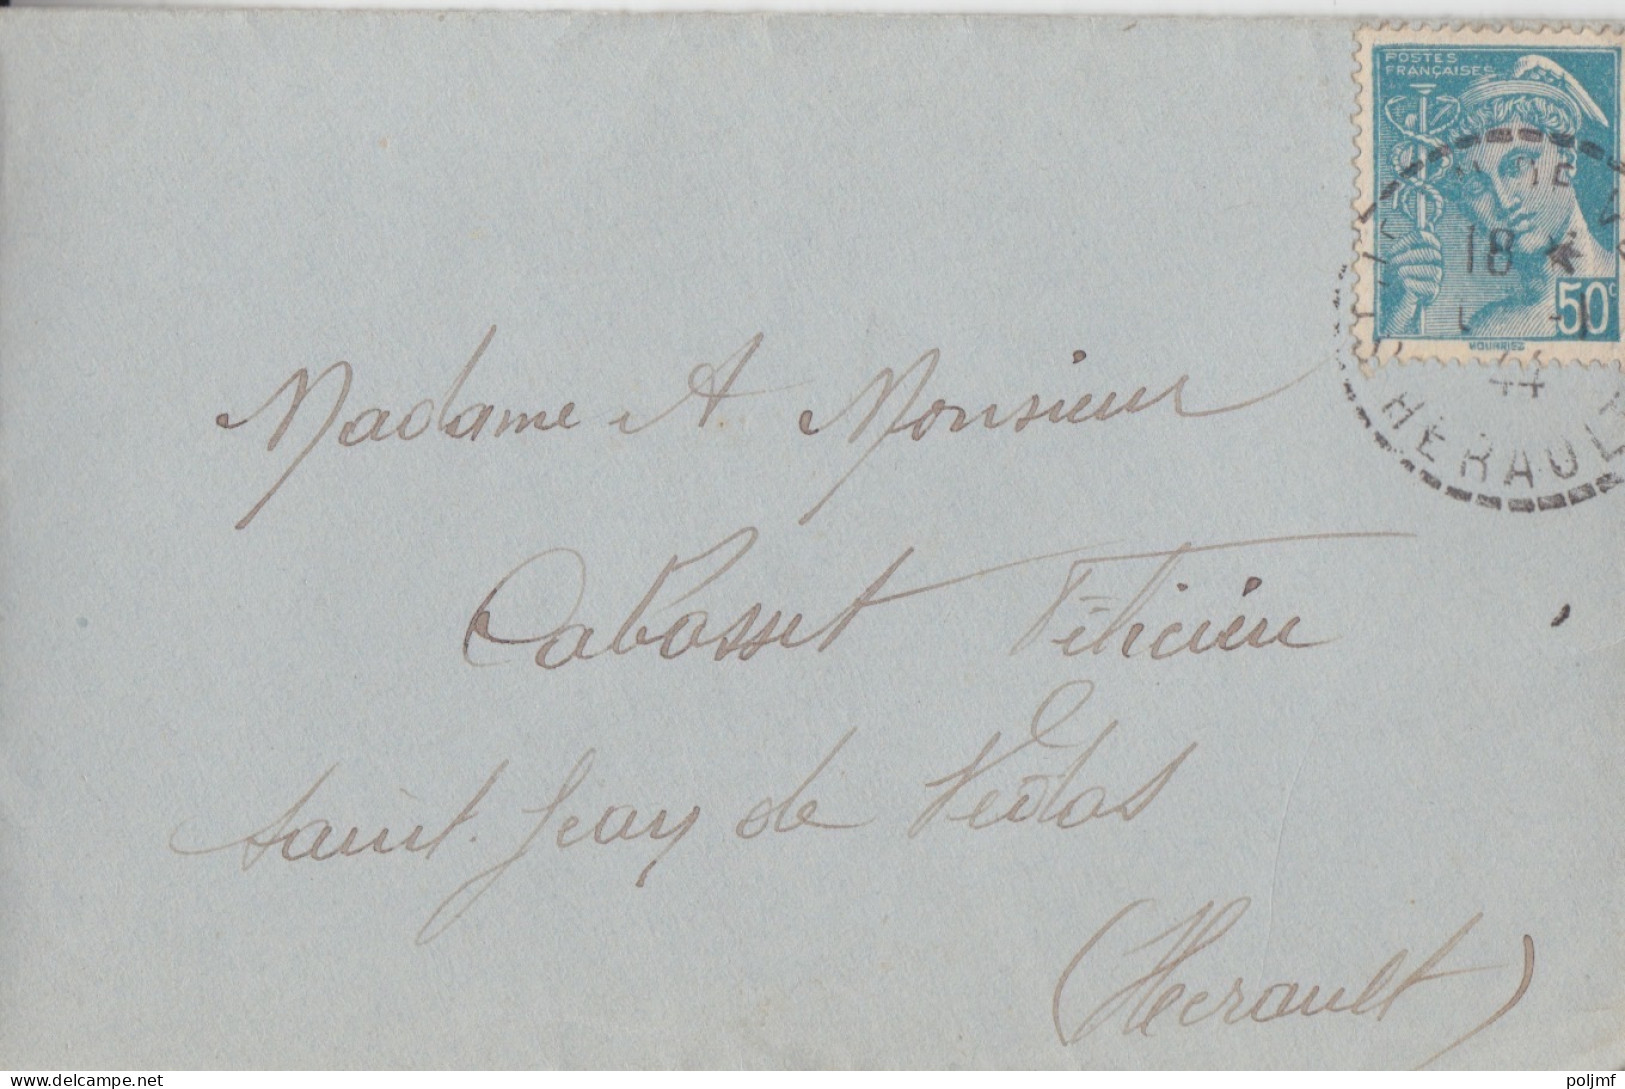 POSTES
FRANÇAISES
18 *
50c
MOURRIEZ
44
HERAULT
Madame et Monsieur
Cabasset Félicien
Saint Jean de Védas
(Herault)
www.delcampe.net
poljmf